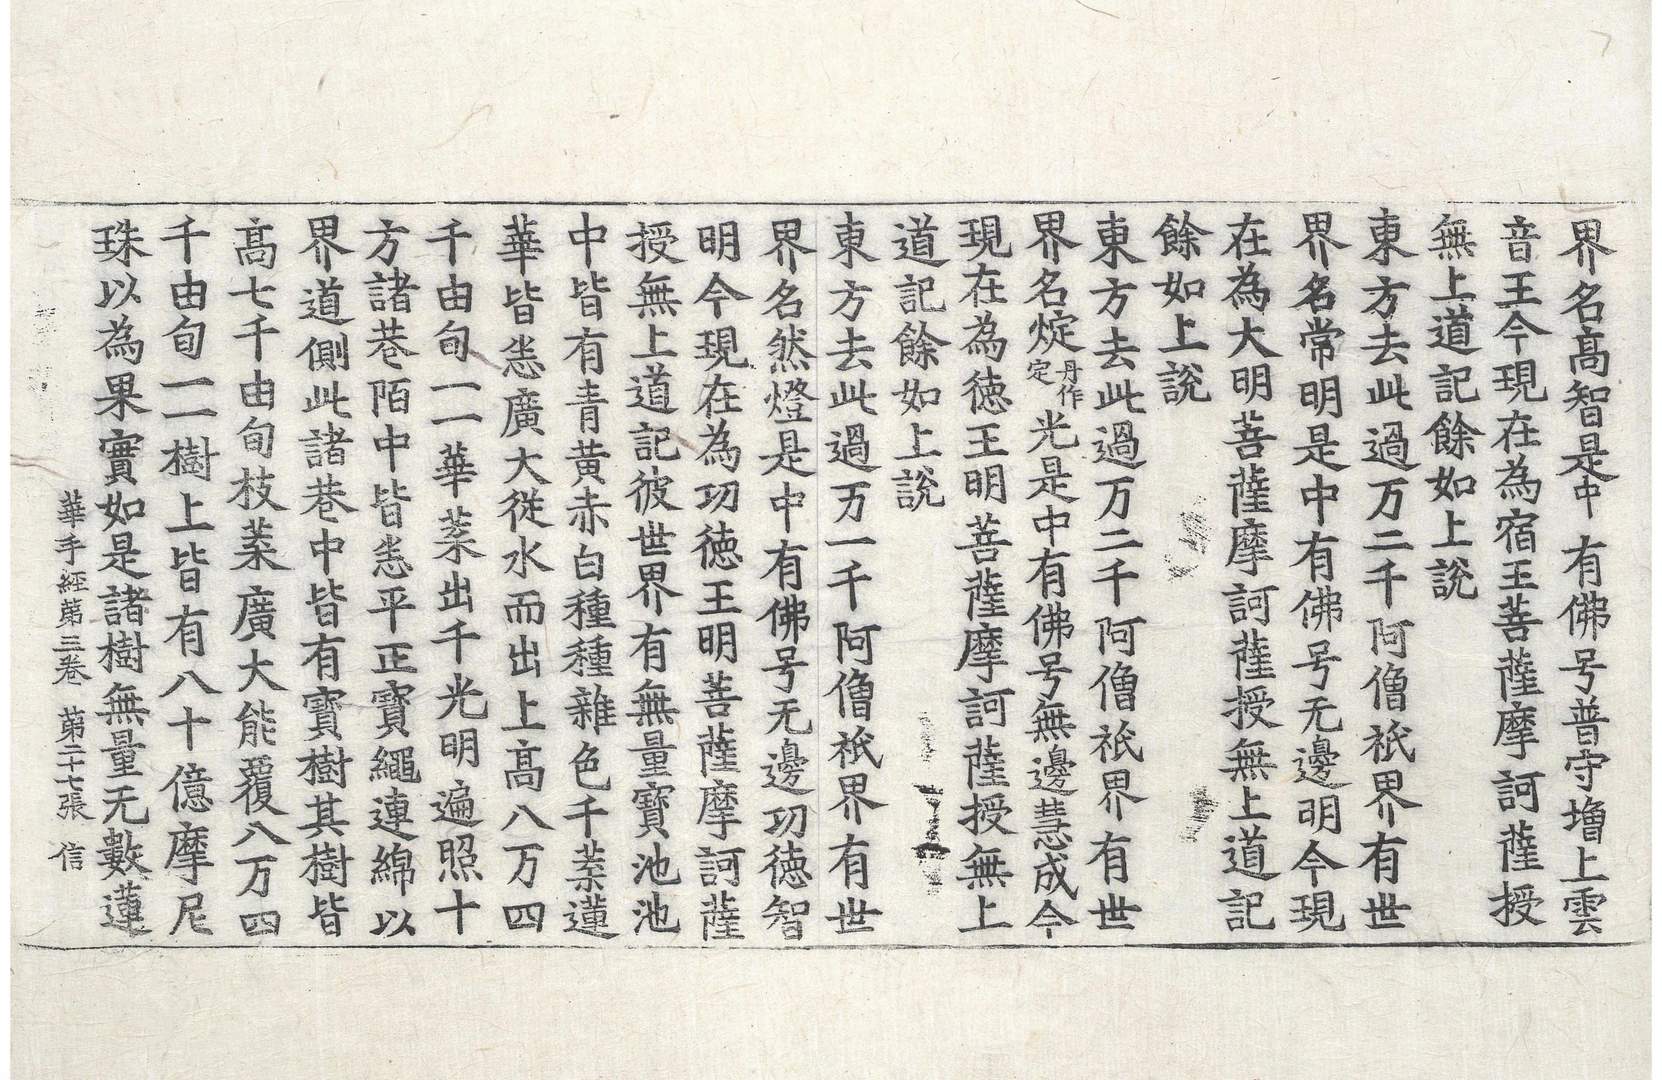 界名高智是中有佛号普守增上雲
音王今現在為宿王菩薩摩訶薩授
無上道記餘如上說
東方去此過万二千阿僧祇界有世
界名常明是中有佛号无邊明今現
在為大明菩薩摩訶薩授無上道記
餘如上說
東方去此過万二千阿僧祇界有世
界名㝎丹作定光是中有佛号無邊慧成今
現在為德王明菩薩摩訶薩授無上
道記餘如上說
東方去此過万一千阿僧祇界有世
界名然燈是中有佛号无邊功德智
明今現在為功德王明菩薩摩訶薩
授無上道記彼世界有無量寶池池
中皆有青黄赤白種種雜色千葉蓮
華皆悉廣大從水而出上高八万四
千由旬一一華葉出千光明遍照十
方諸巷陌中皆悉平正寶繩連綿以
界道側此諸巷中皆有寶樹其樹皆
高七千由旬枝葉廣大能覆八万四
千由旬一一樹上皆有八十億摩尼
珠以為果實如是諸樹無量无數蓮
華手經第三卷 第二十七張 信